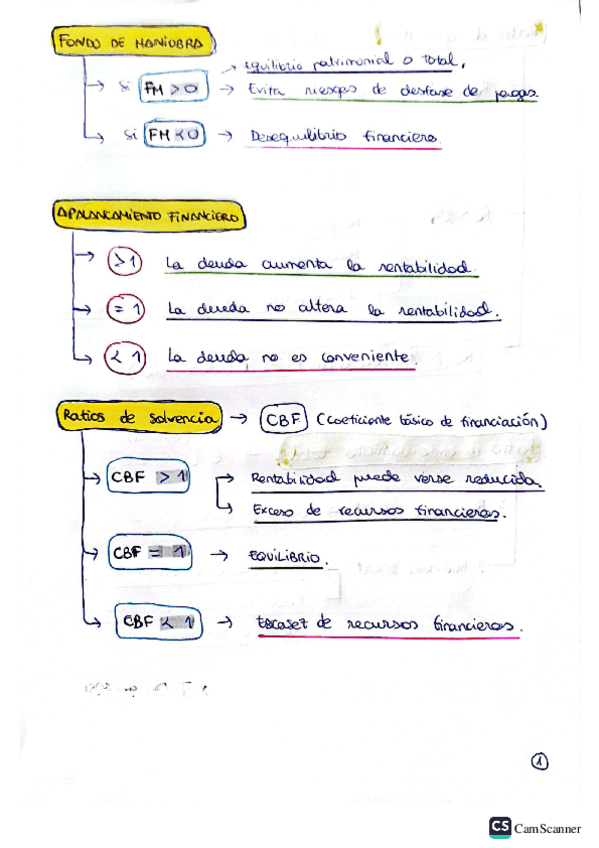 FONDO DE MANIOBRA
Equilibrio patrimonial o total.
Si FM > 0 → Evita riesgos de desfase de pagos.
Si FM < 0 → Desequilibrio financiero.
APALANCAMIENTO FINANCIERO
> 1 La deuda aumenta la rentabilidad.
= 1 La deuda no altera la rentabilidad.
< 1 La deuda no es conveniente.
Ratios de solvencia → CBF (coeficiente básico de financiación)
CBF > 1 → Rentabilidad puede verse reducida.
→ Exceso de recursos financieros.
CBF = 1 → EQUILIBRIO.
CBF < 1 → Escasez de recursos financieros.
1
CS CamScanner